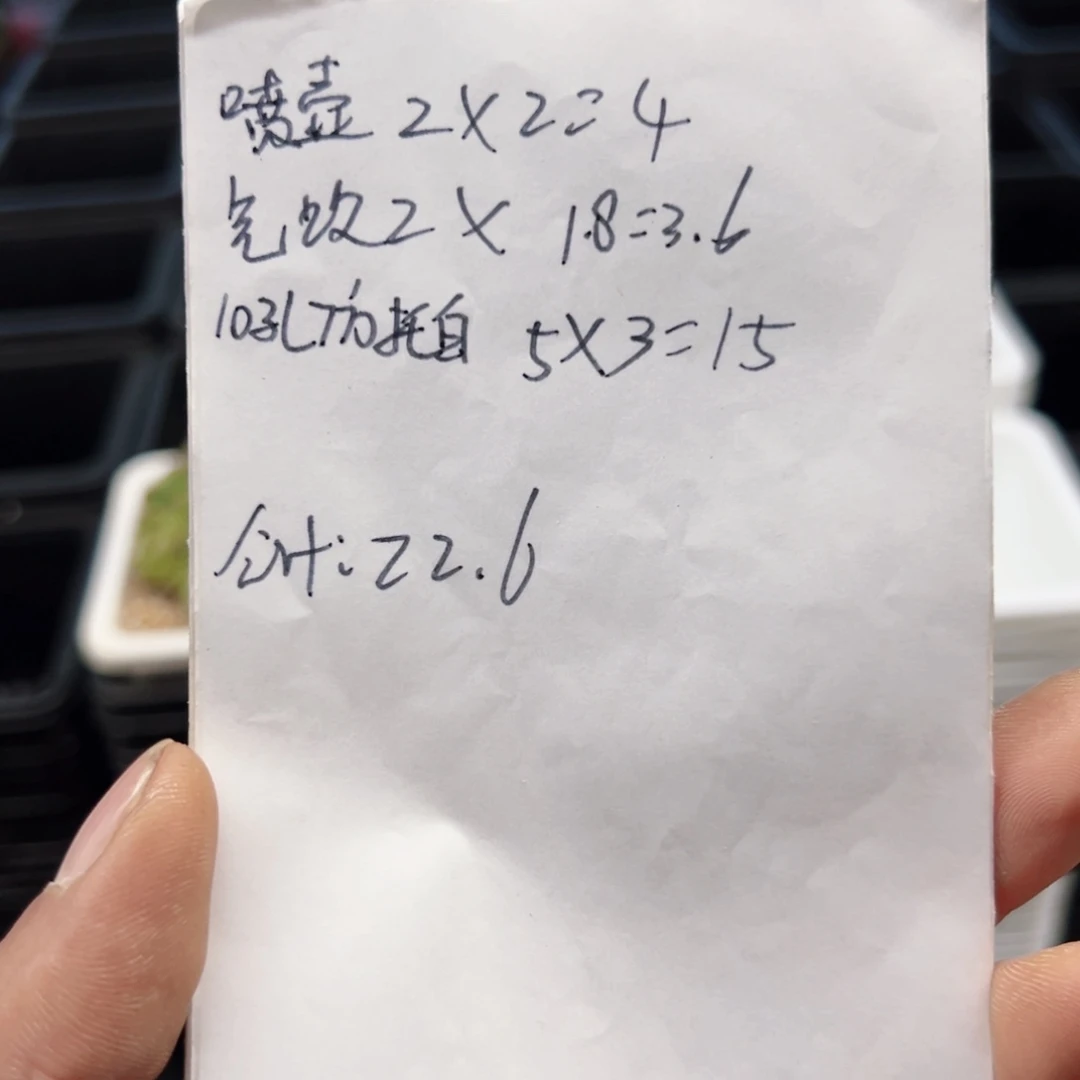 喷壶 2×2=4
气吹2× 1.8=3.6
10孔方托自 5×3=15
合计:22.6